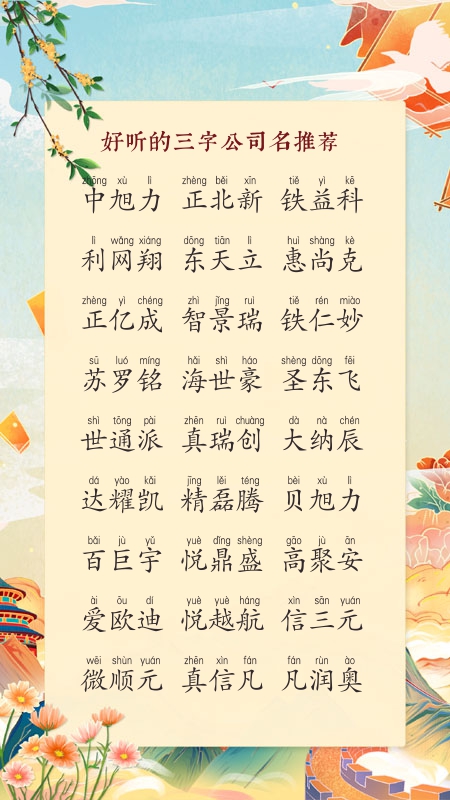 好听的三字公司名推荐
zhōng xù lì zhèng běi xīn tiě yì kē
中旭力 正北新 铁益科
lì wǎng xiáng dōng tiān lì huì shàng kè
利网翔 东天立 惠尚克
zhèng yì chéng zhì jǐng ruì tiě rén miào
正亿成 智景瑞 铁仁妙
sū luó míng hǎi shì háo shèng dōng fēi
苏罗铭 海世豪 圣东飞
shì tōng pài zhēn ruì chuàng dà nà chén
世通派 真瑞创 大纳辰
dá yào kǎi jīng lěi téng bèi xù lì
达耀凯 精磊腾 贝旭力
bǎi jù yǔ yuè dǐng shèng gāo jù ān
百巨宇 悦鼎盛 高聚安
ài ōu dí yuè yuè háng xìn sān yuán
爱欧迪 悦越航 信三元
wēi shùn yuán zhēn xìn fán fán rùn ào
微顺元 真信凡 凡润奥